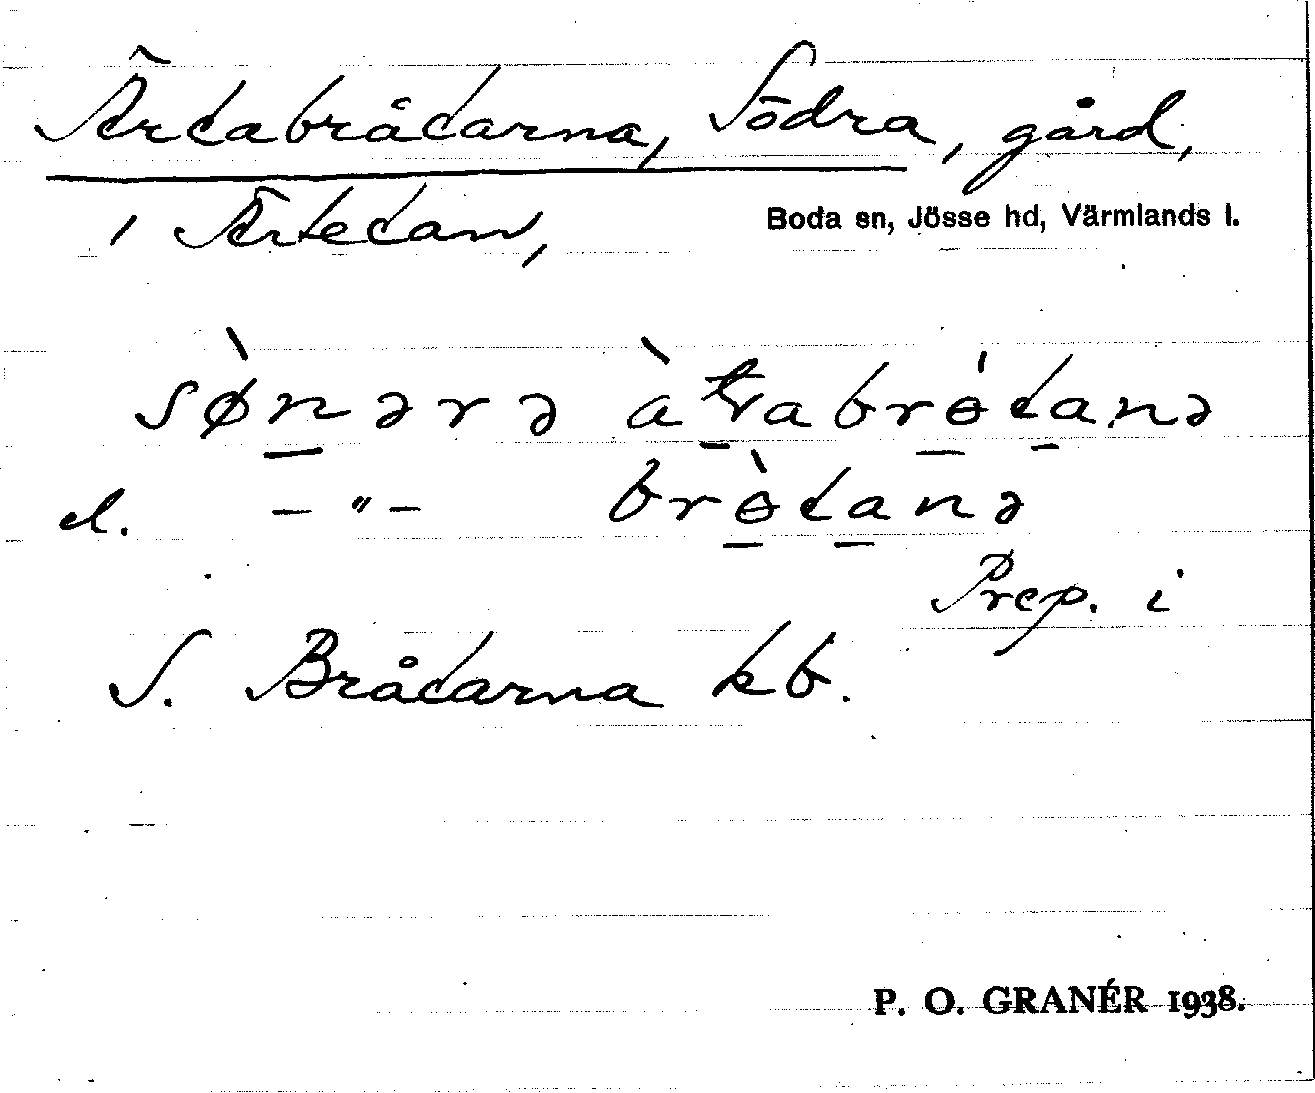 Ärtabråtarna, Södra, gård,
i Ärtetan,
Boda sn, Jösse hd, Värmlands l.
sø̀nərə àtrabrɵ́tanə
el. – " – brɵ̀tanə
Prep. i
S. Bråtarna kb.
P. O. GRANÉR 1938.